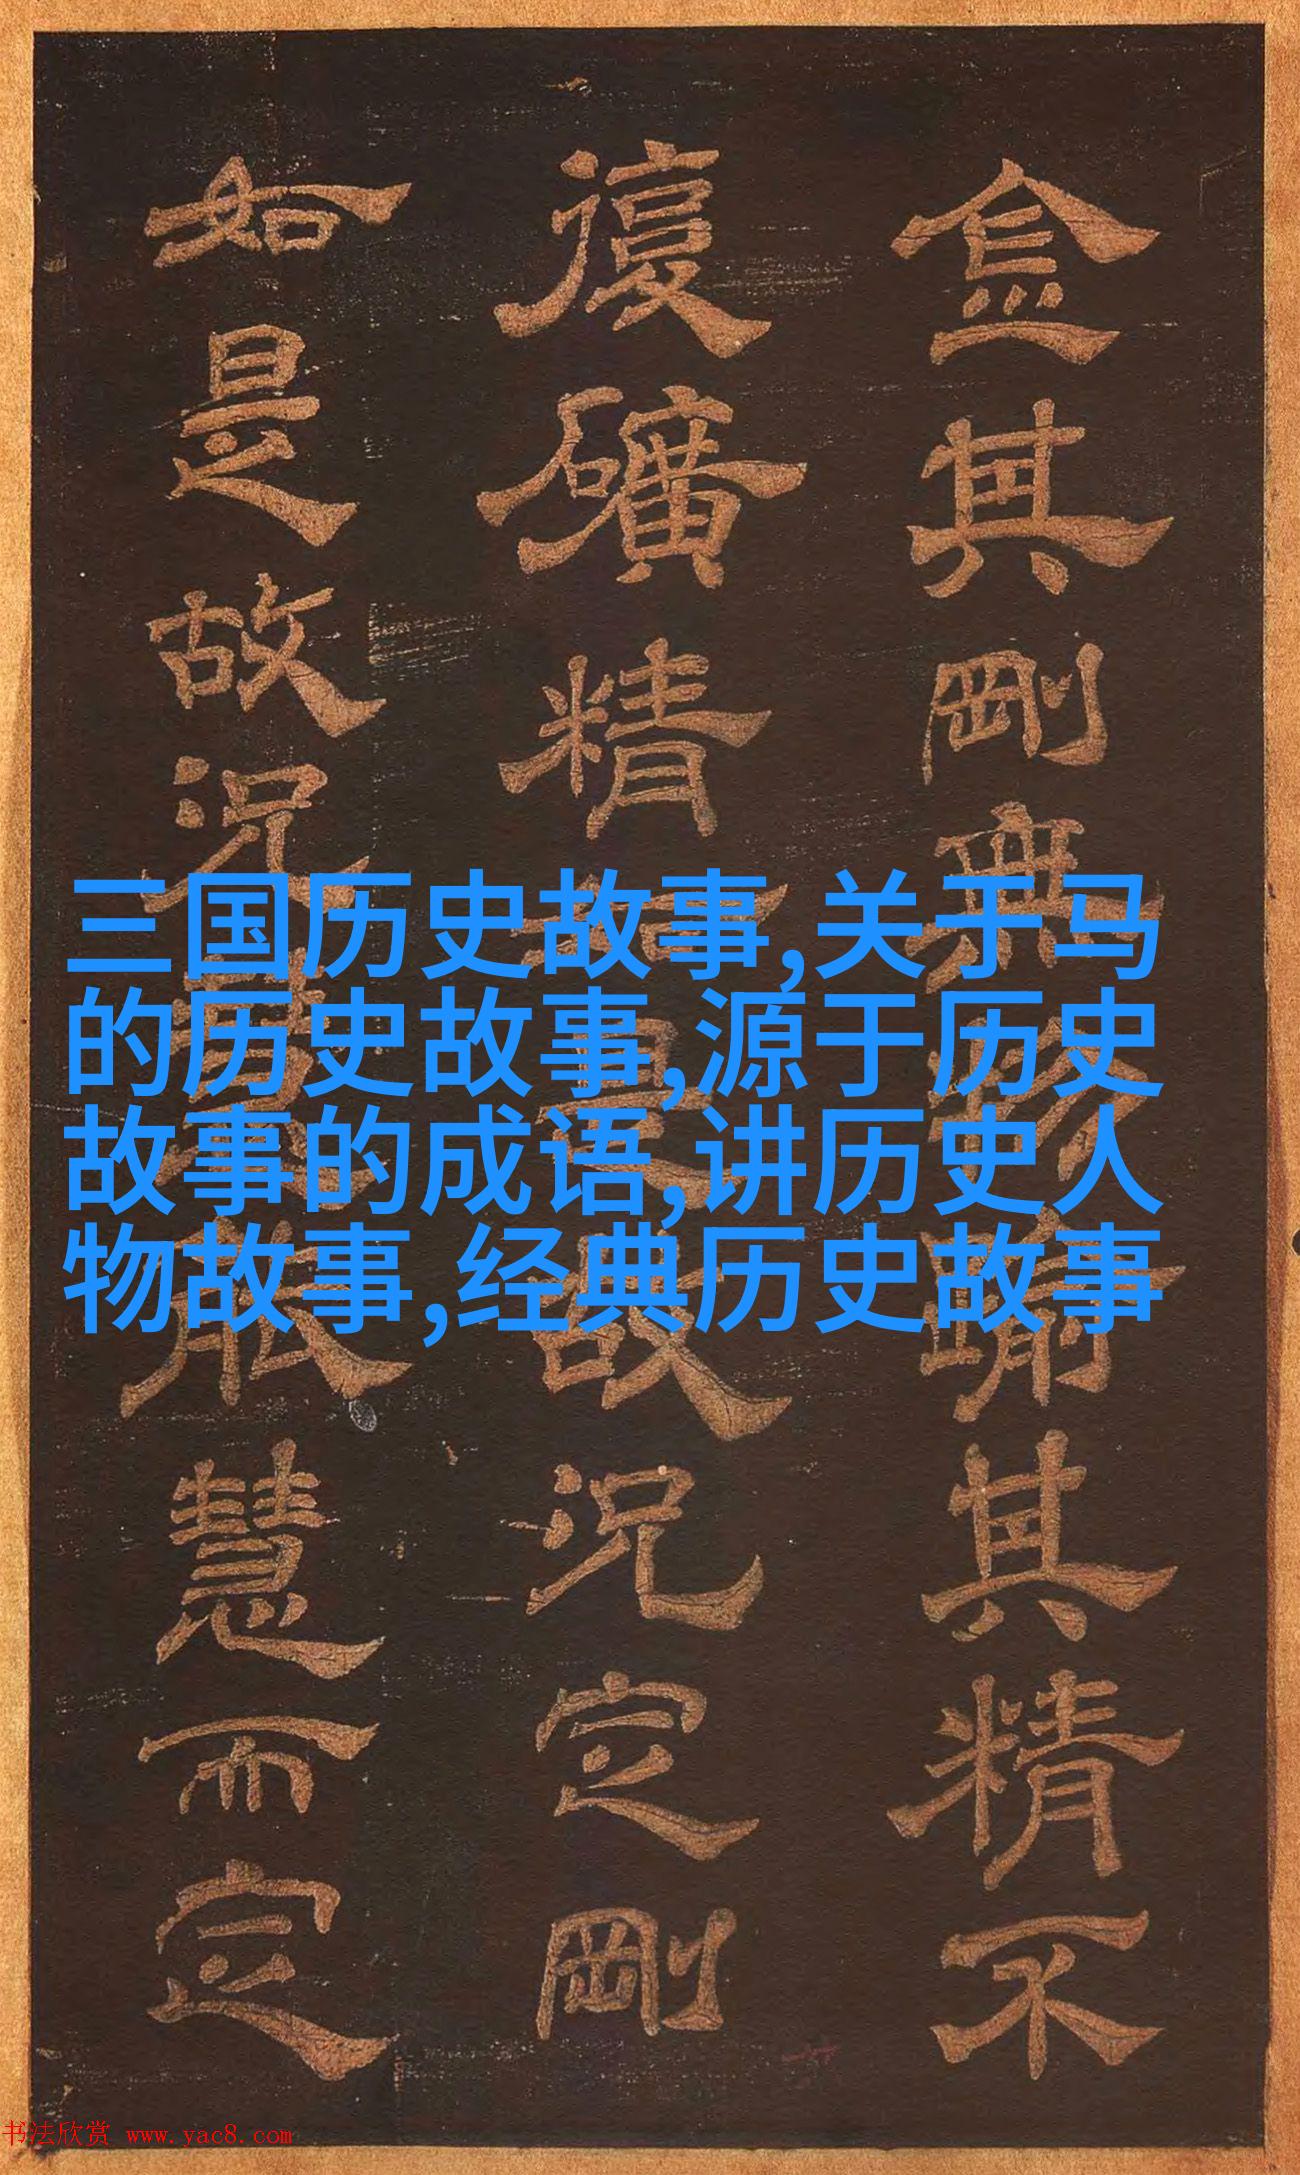 其剛無物踰其精不
復礦精如是故況定剛
如是故況般慧而定
三国历史故事,关于马
的历史故事,源于历史
故事的成语,讲历史人
物故事,经典历史故事
书法欣赏 www.yac8.com